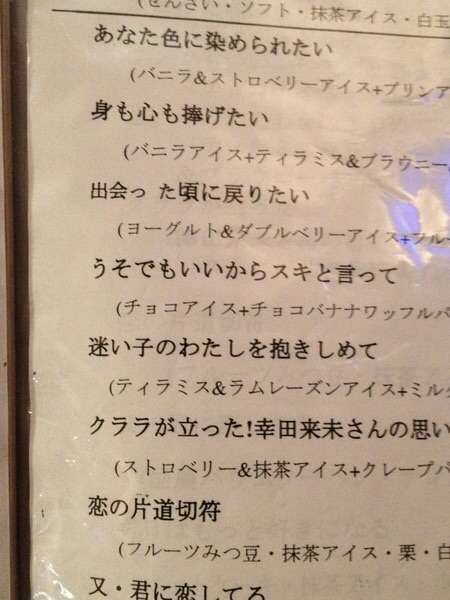 (ぜんざい・ソフト・抹茶アイス・白玉
あなた色に染められたい
(バニラ&ストロベリーアイス+プリンア
身も心も捧げたい
(バニラアイス+ティラミス&ブラウニー&
出会っ た頃に戻りたい
(ヨーグルト&ダブルベリーアイス+フルー
うそでもいいからスキと言って
(チョコアイス+チョコバナナワッフルパ
迷い子のわたしを抱きしめて
(ティラミス&ラムレーズンアイス+ミル
クララが立った!幸田来未さんの思い
(ストロベリー&抹茶アイス+クレープパ
恋の片道切符
(フルーツみつ豆・抹茶アイス・栗・白
又・君に恋してる